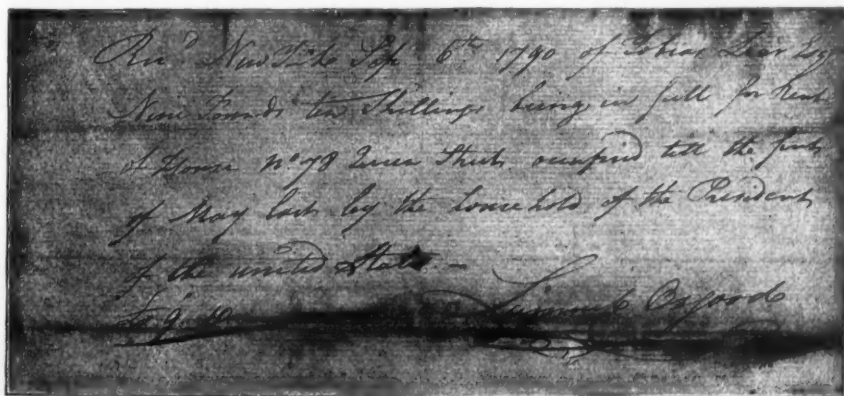 Rec.d New York Sep. 6th 1790 of Tobias Lear Esqr
Nine Pounds ten Shillings being in full for Rent
of House no 78 Queen Street occupied till the first
of May last by the household of the President
of the united States. —
£9.10 Samuel Osgood